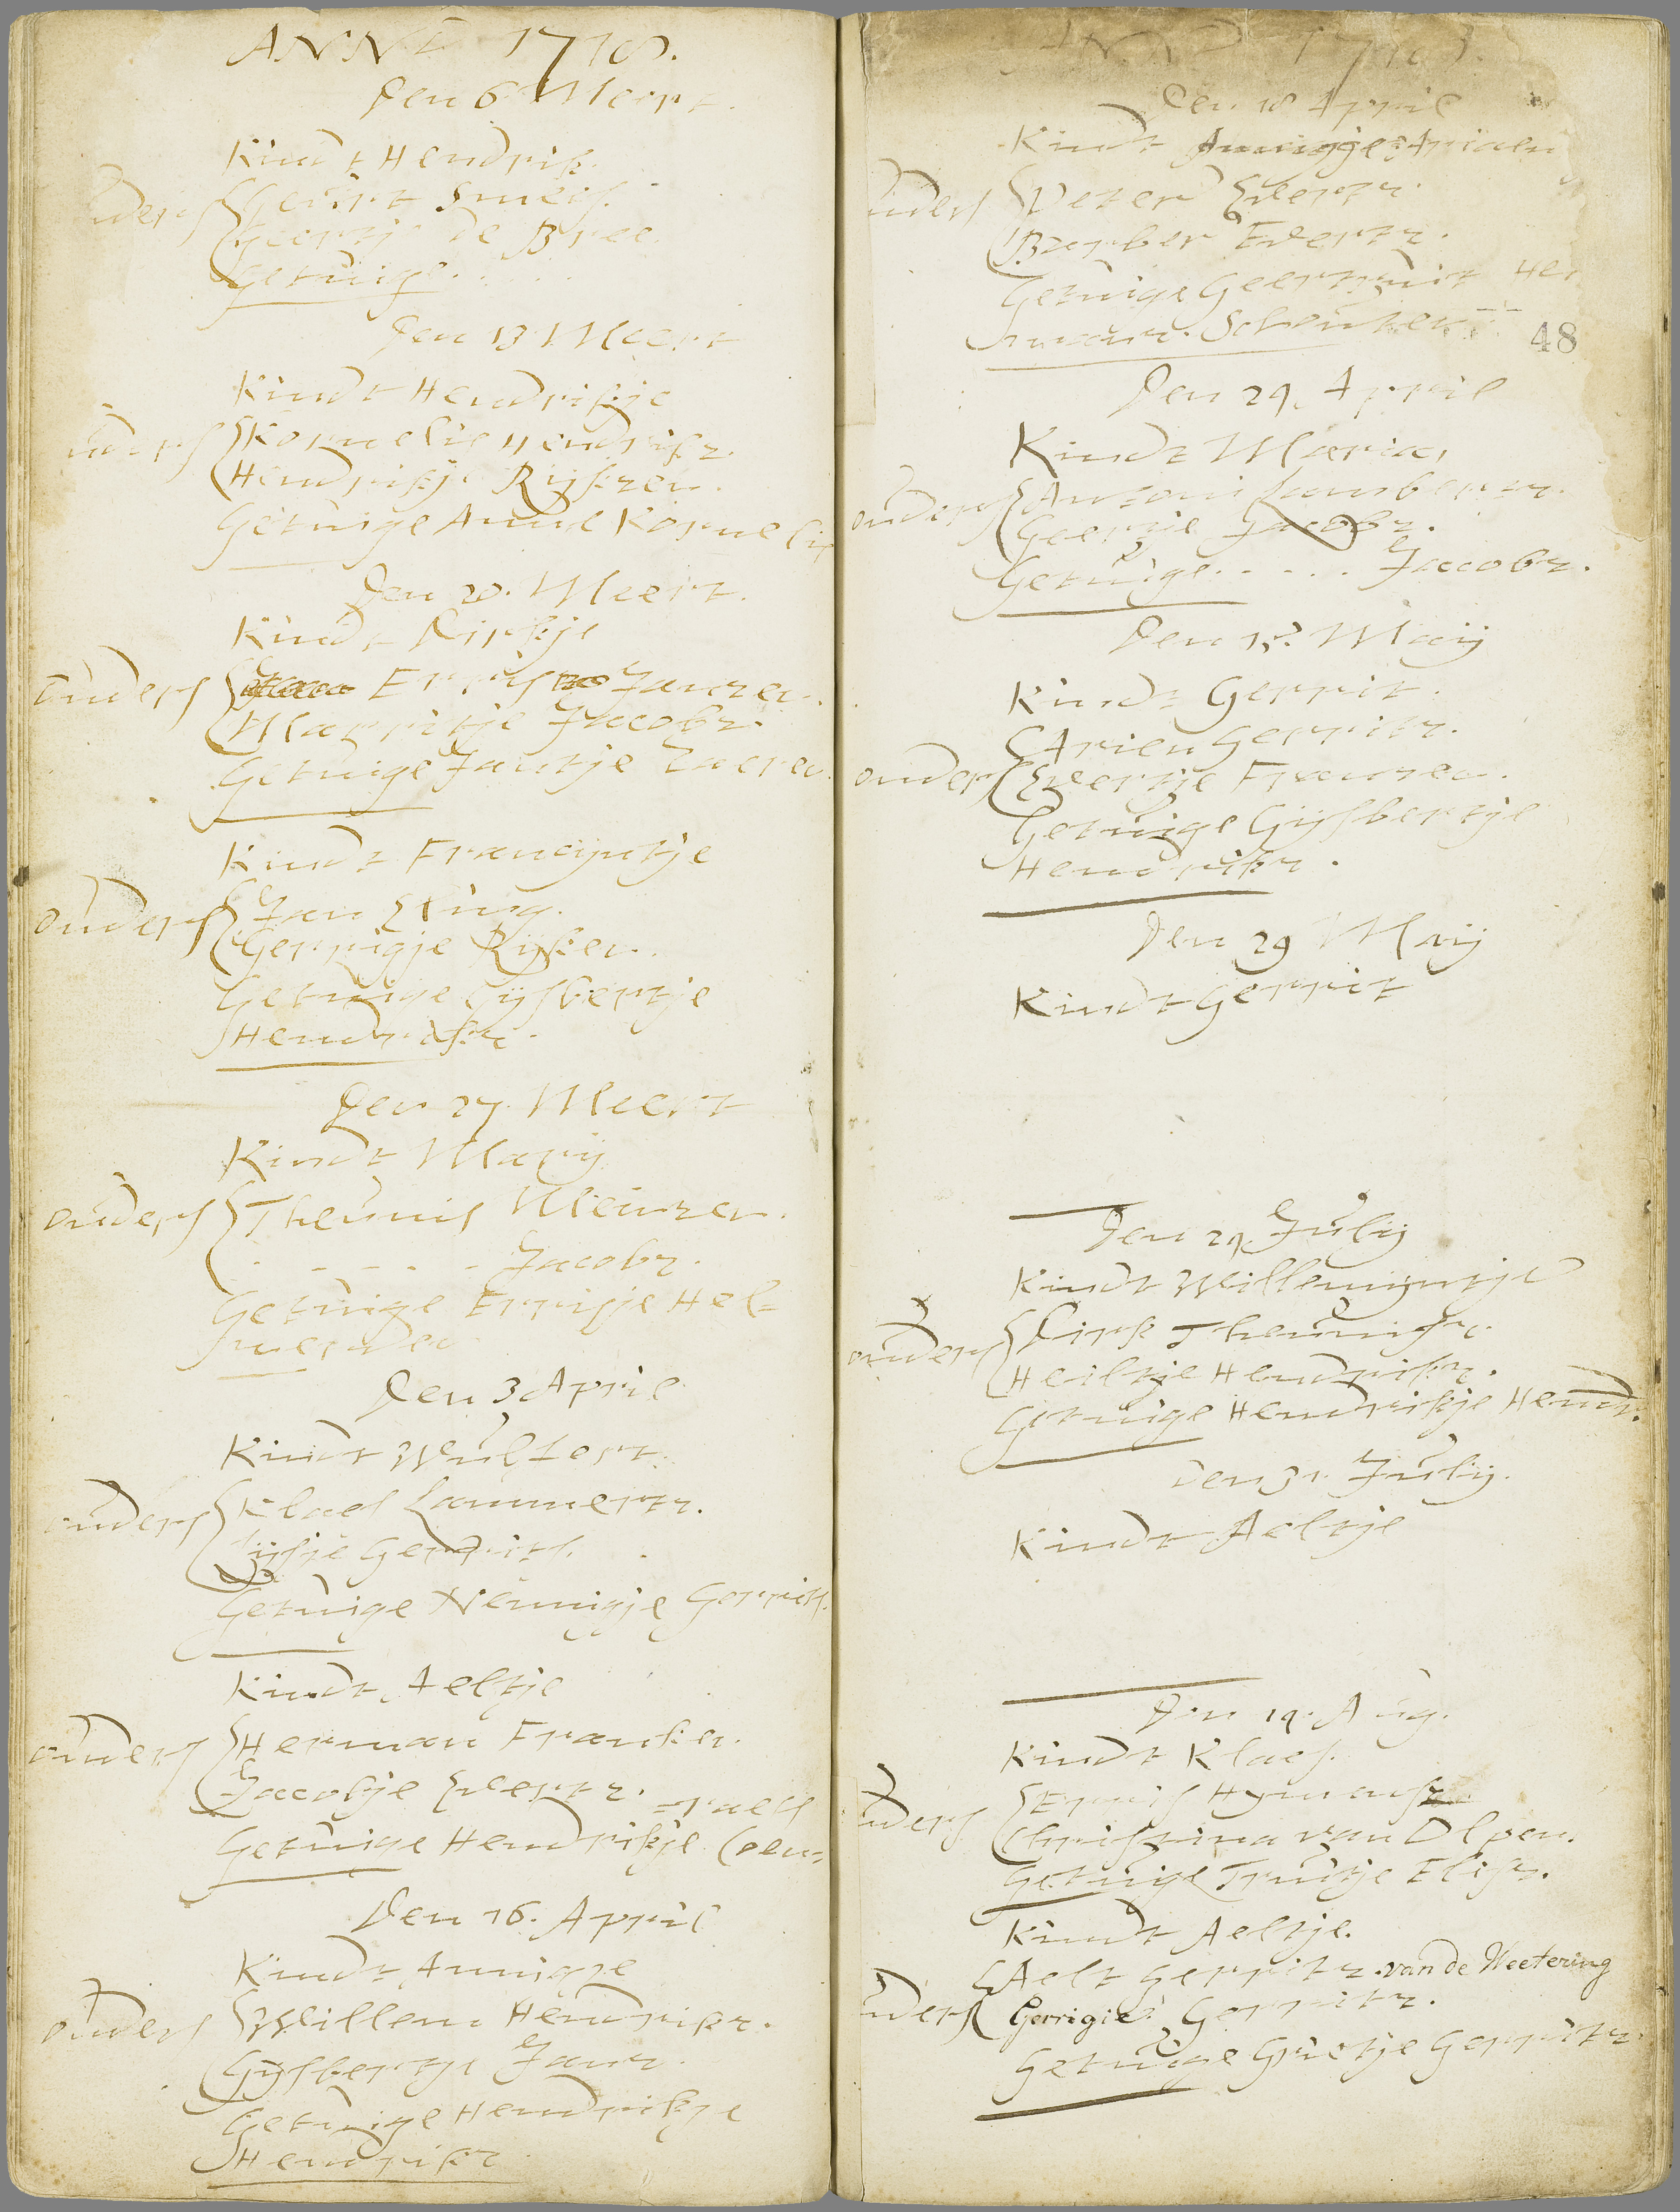 ANNO 1718.
Den 6 Meert.
Kindt Hendrik
Ouders Geurt Smeis.
Geertje de Bree
Getuige.....
Den 13 Meert
Kindt Hendrikje
Ouders Kornelis Hendrikz.
Hendrikje Rijkzen.
Getuige Anne Kornelis
Den 20. Meert.
Kindt Dirkje
Ouders Erris Janzen.
Marritje Jacobz.
Getuige Jantje
Kindt Francijntje
Ouders Jan
Gerrigje Rijken.
Getuige Gijsbertje
Hendrikz.
Den 27. Meert
Kindt Marij
Ouders Theunis Meinzen.
. - - - - Jacobz.
Getuige Errisje Hel-
Den 3 April
Kindt Wulfert.
Ouders Klaes Lammertz.
Lijsje Gerrits.
Getuige Nennigje Gerrits.
Kindt Aeltje
Ouders Herman Franken.
Jacobje Evertz.
raets
Getuige Hendrikje Coen-
Den 16. April
Kindt Annigje
Ouders Willem Hendrikz.
Gijsbertje Janz.
Getuige Hendrikje
Hendrikz
ANNO 1718.
Den 18 April
Kindt Annigje Ariaen
Ouders Peter Evertz.
Barber Evertz.
Getuige Geertruit Her
manz. Schouten
48
Den 24. April
Kindt Maria,
Ouders Antoni Lambertz.
Geertje Jacobz.
Getuige..... Jacobz.
Den 13. Maij
Kindt Gerrit.
Arien Gerritz.
Ouders Evertje Franzen.
Getuige Gijsbertje
Hendrikz.
Den 29 Maij
Kindt Gerrit
Den 24. Julij
Kindt Willemijntje
Ouders Dirk Theunisz.
Heiltje Hendrikz.
Getuige Hendrikje Hendr.
Den 31 Julij.
Kindt Aeltje
Den 14. Aug.
Kindt Klaes.
Ouders Erris Hymansz
Christina van Olpen.
Getuige Truitje Elisz.
Kindt Aeltje.
Aelt Gerritz. van de Weetering
Ouders Gerrigie Gerritz.
Getuige Grietje Gerritz